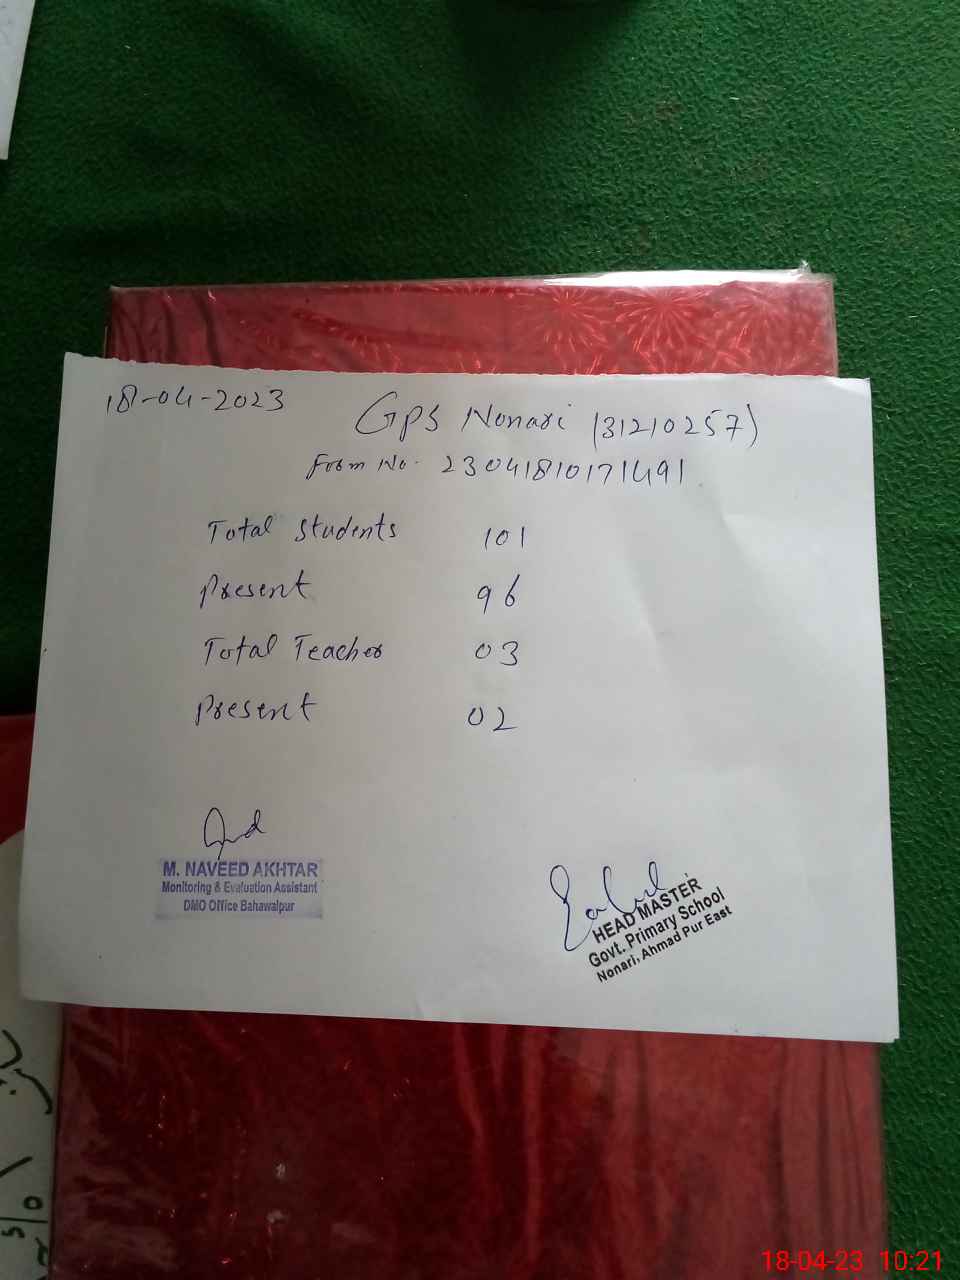 18-04-2023
GPS Nonari (31210257)
Form No. 23041810171491
Total Students 101
Present 96
Total Teacher 03
Present 02
M. NAVEED AKHTAR
Monitoring & Evaluation Assistant
DMO Office Bahawalpur
HEAD MASTER
Govt. Primary School
Nonari, Ahmad Pur East
18-04-23 10:21